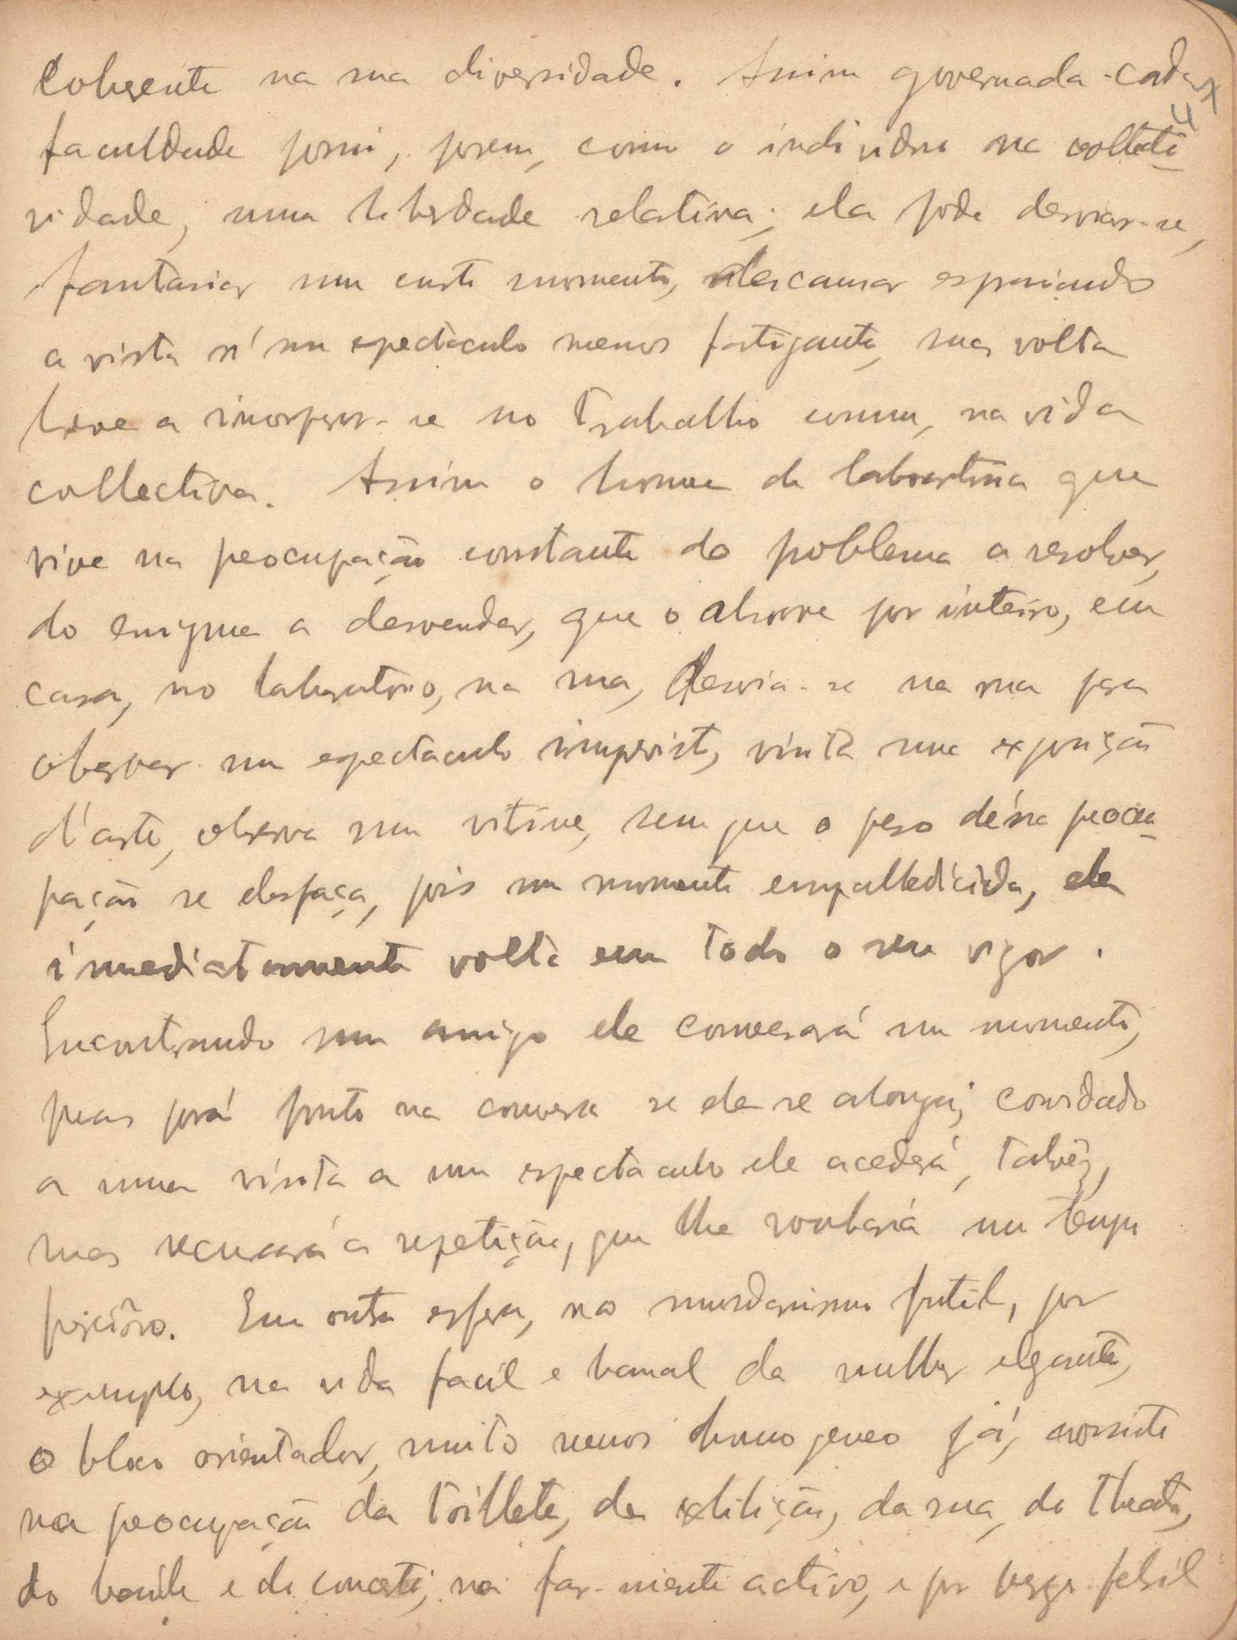 coherente na sua diversidade. Assim governada cada
faculdade possui, porem, como o individuo na collecti-
vidade, uma liberdade relativa; ela pode desviar-se,
fantasiar um curto momento, descansar espraiando
a vista n'um espectaculo menos fatigante, mas volta
breve a incorporar-se no trabalho comum, na vida
collectiva. Assim o homem de laboratorio que
vive na preocupação constante do problema a resolver,
do enigma a desvendar, que o absorve por inteiro, em
casa, no laboratorio, na rua, desvia-se na rua para
observar um espectaculo imprevisto, visita uma exposição
d'arte, observa uma vitrine, sem que o peso déssa preocu-
pação se desfaça, pois um momento empallidecida, ela
imediatamente volta em todo o seu vigor.
Encontrando um amigo ele conversará um momento,
mas porá ponto na conversa se ela se alonga; convidado
a uma visita a um espectaculo ele acederá, talvêz,
mas recusará a repetição, que lhe roubaria um tempo
precioso. Em outra esfera, no mundanismo futil, por
exemplo, na vida facil e banal da mulher elegante,
o bloco orientador, muito menos homogeneo já, consiste
na preocupação da toillete, da exhibição, da rua, do theatro,
do baile e do concerto, no far-niente activo, e por vezes febril